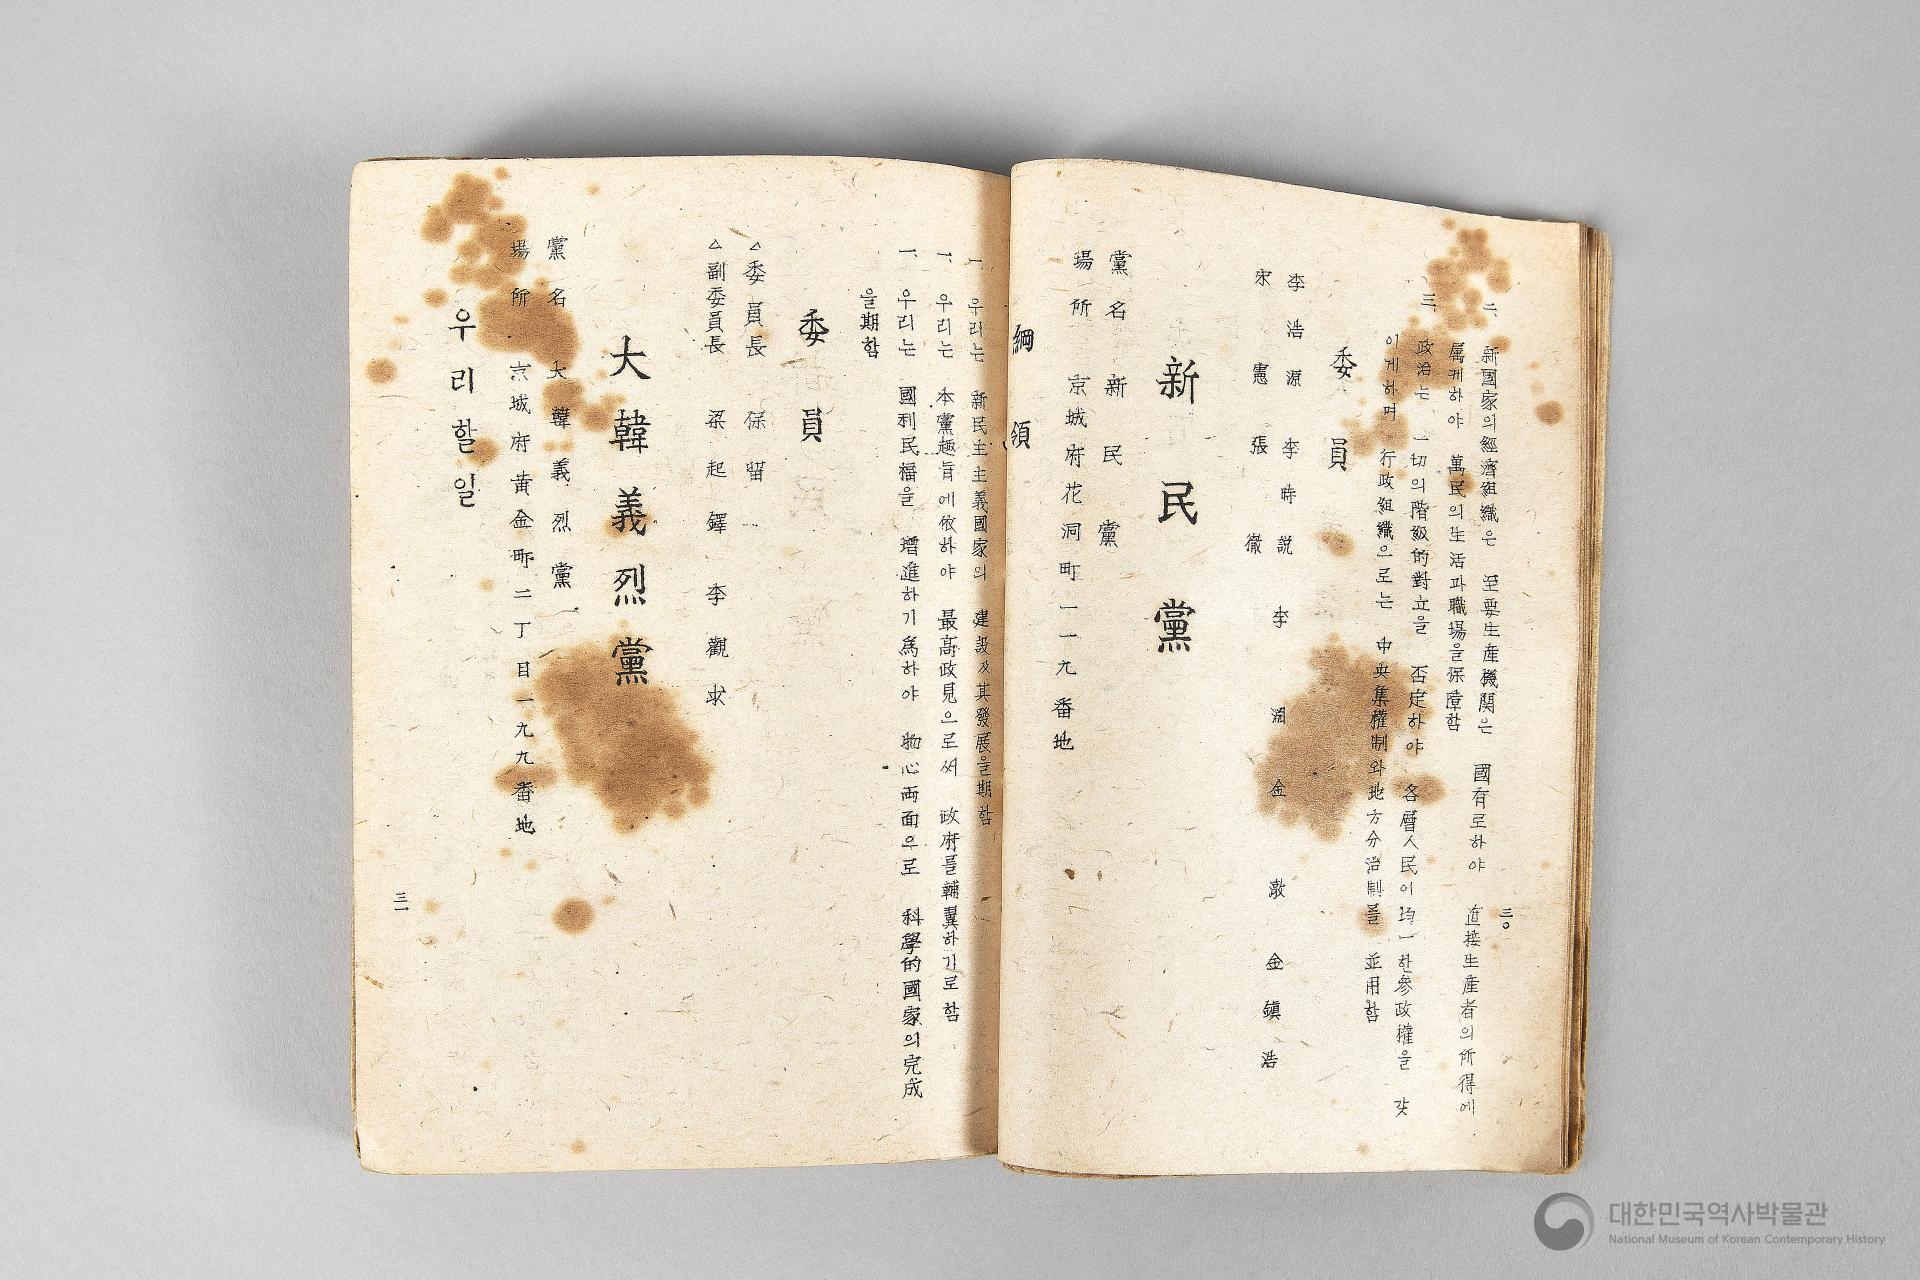 三〇
二、新國家의經濟組織은 主要生産機関은 國有로하야 直接生産者의所得에
屬케하야 萬民의生活과職場을保障함
三、政治는 一切의階級的對立을 否定하야 各層人民이均一한參政權을 갖
이게하며 行政組織으로는 中央集權制와地方分治制를 並用함
委員
李浩源 李時說 李 淵 金 敾 金鎮浩
宋 憲 張 徹
新民黨
黨名 新民黨
場所 京城府花洞町一一九番地
綱領
一、우리는 新民主主義國家의 建設及其發展을期함
一、우리는 本黨趣旨에依하야 最高政見으로써 政府를輔翼하기로함
一、우리는 國利民福을 增進하기爲하야 物心両面으로 科學的國家의完成
을期함
委員
△委員長 保留
△副委員長 梁起鐸 李觀求
大韓義烈黨
黨名 大韓義烈黨
場所 京城府黃金町二丁目一九九番地
우리할일
三一
대한민국역사박물관
National Museum of Korean Contemporary History